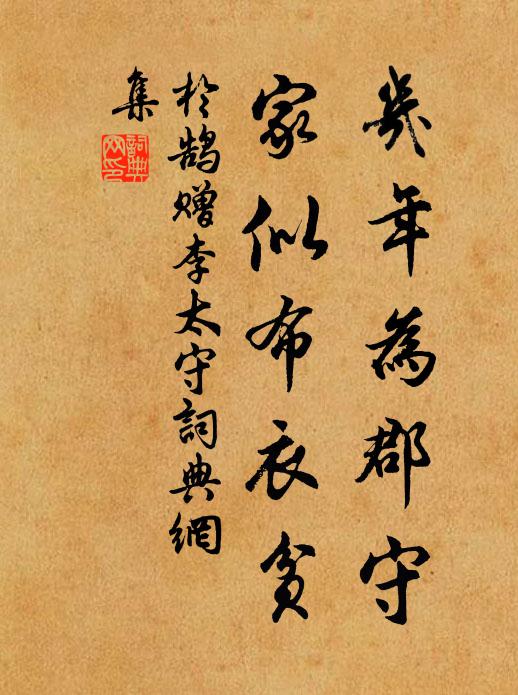 幾年為郡守
家似布衣貧
於鵠贈李太守詞典網
集
詞典
网印